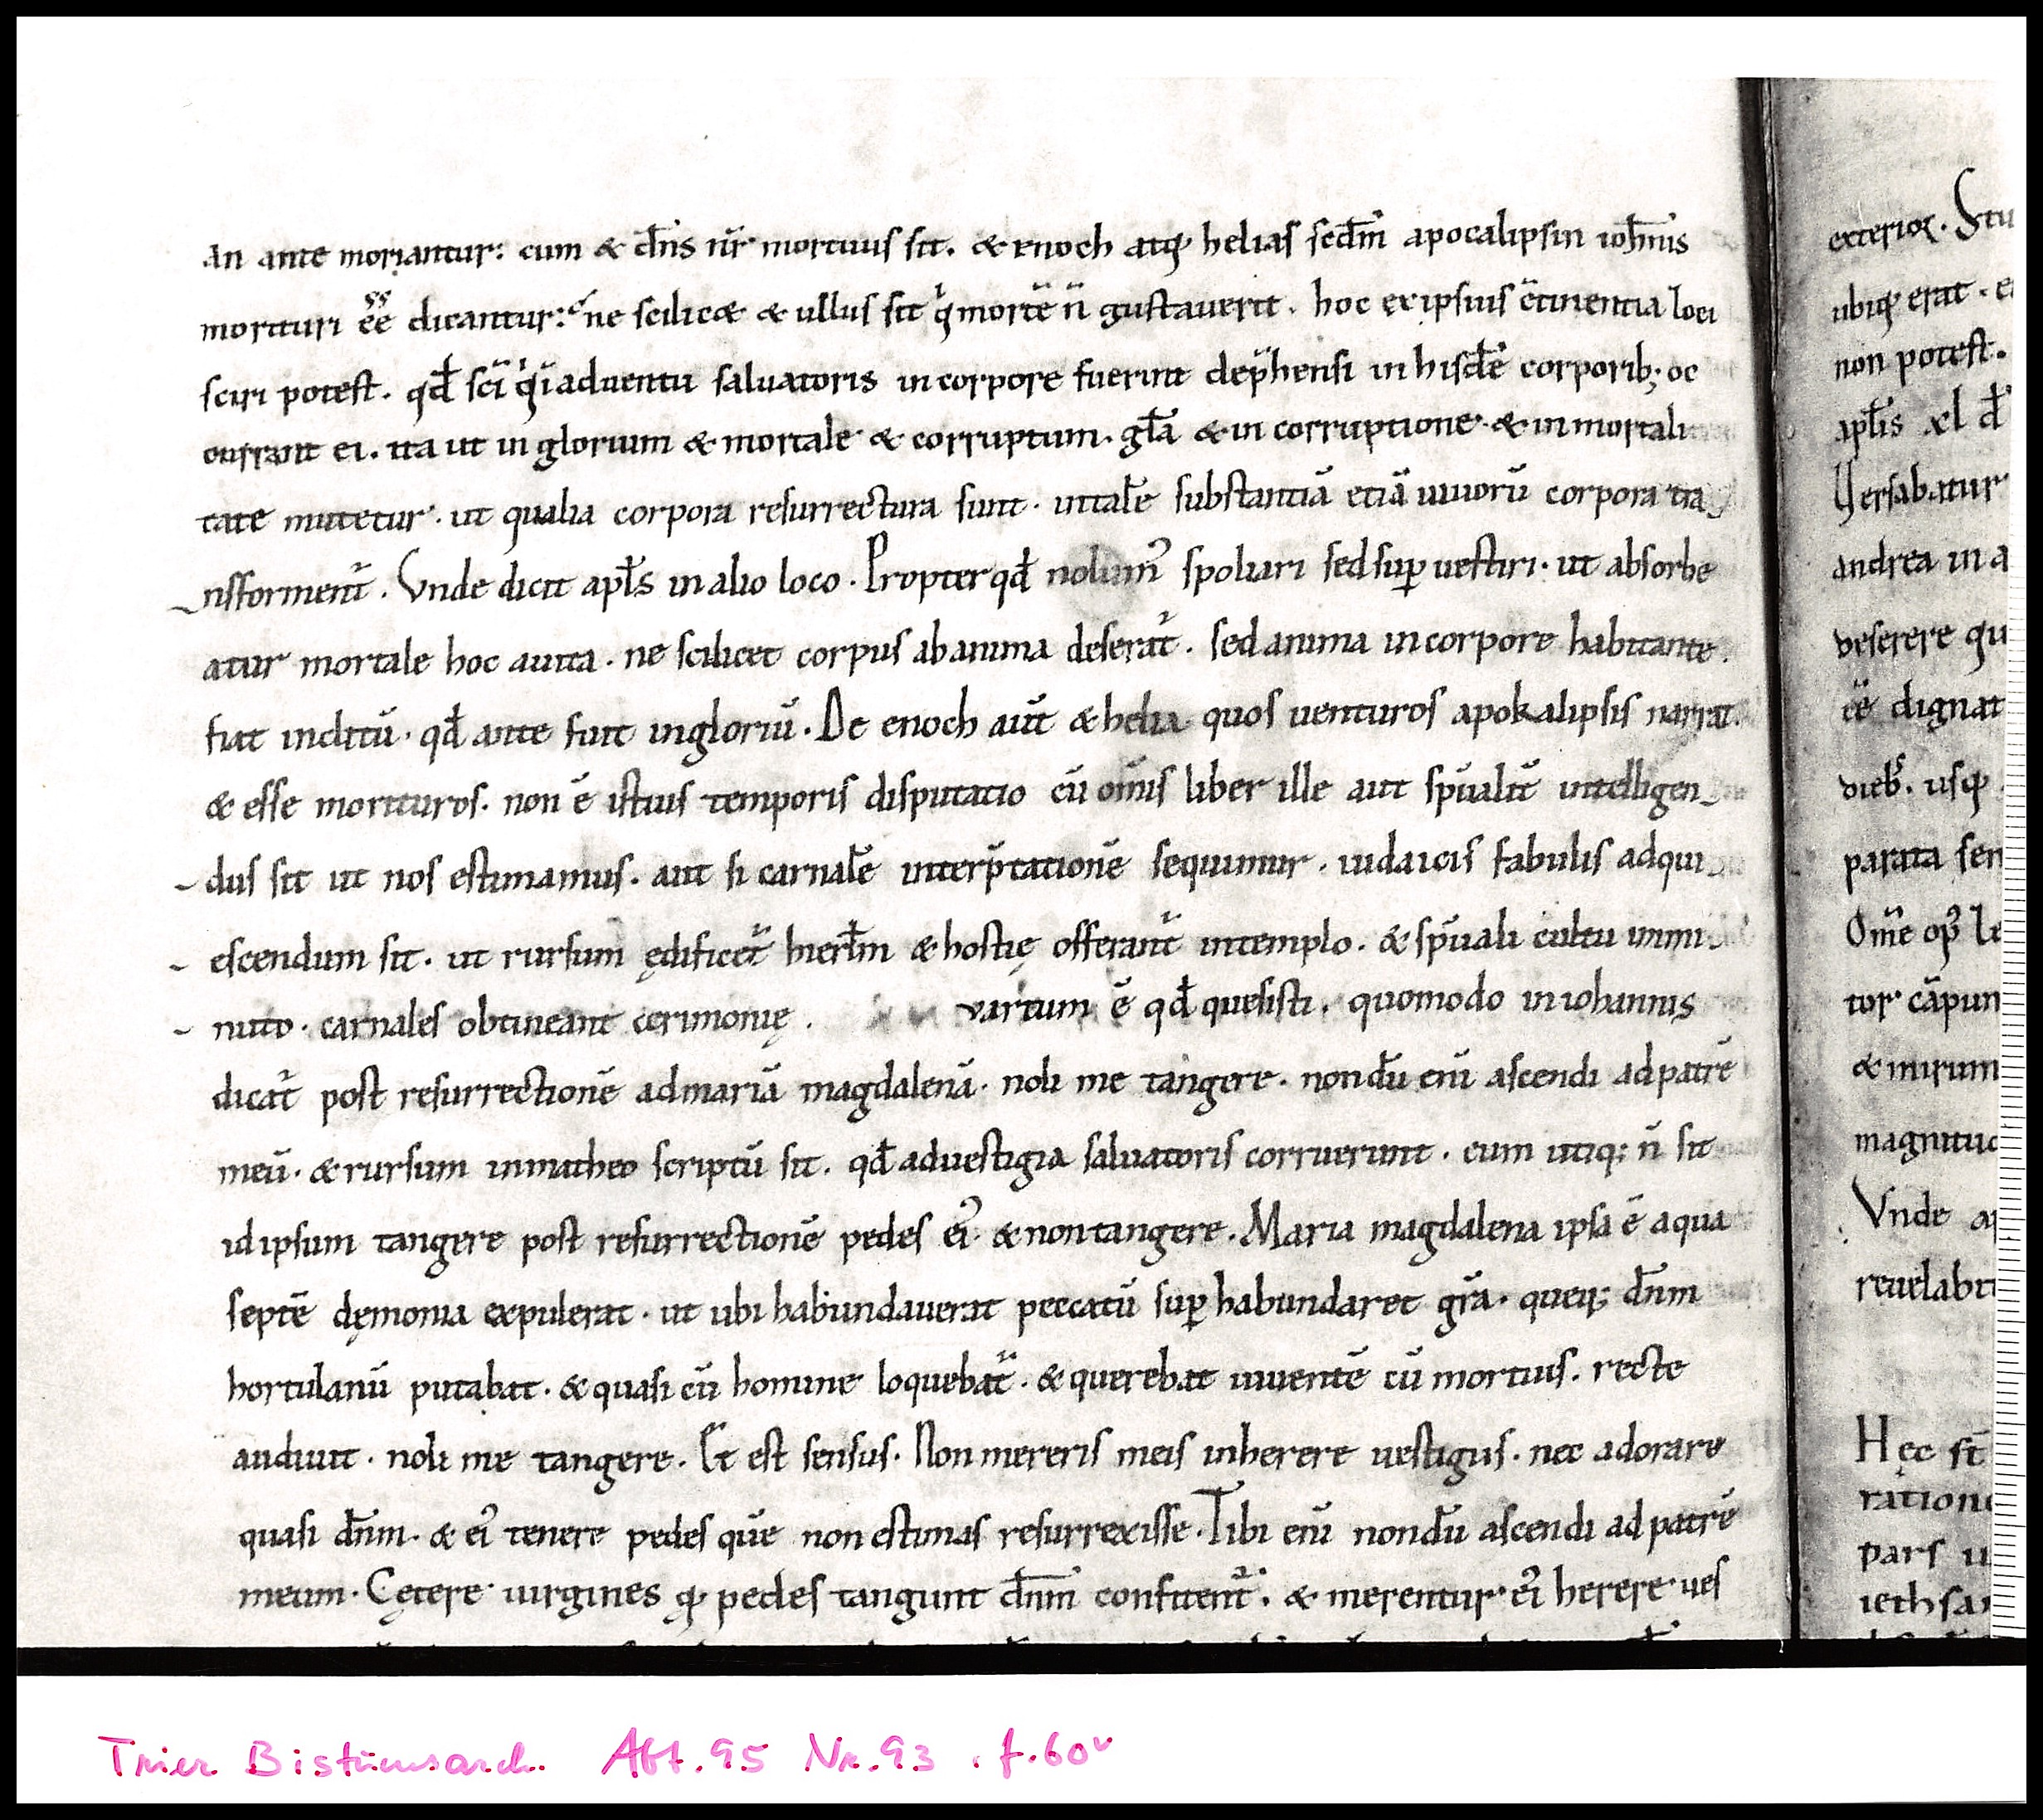 an ante moriantur: cum & dn̄s nr̄ mortuus sit. & enoch atq; helias scd̄m apocalipsin ioh̄nis
morituri ēē dicantur: ne scilicæ & ullus sit q̇ mortē n̄ gustauerit. hoc ex ipsius ↄ̄tinentia loci
sciri potest. qd̄ sc̄i q̇ in aduentu saluatoris in corpore fuerint dep̄hensi in hisdē corporib; oc
currant ei. ita ut inglorium & mortale & corruptum. gl̄a & incorruptione. & inmortali
tate mutetur. ut qualia corpora resurrectura sunt. in talē substantiā etiā uiuorū corpora tra
nsforment̄. Vnde dicit apl̄s in alio loco. Propter qd̄ nolum᷒ spoliari sed sup̱ uestiri. ut absorbe
atur mortale hoc a uita. ne scilicet corpus ab anima deserat̄. sed anima in corpore habitante.
fiat inclitū. qd̄ ante fuit ingloriū. De enoch aūt & helia quos uenturos apokalipsis narrat.
& esse morituros. non ē istius temporis disputatio cū om̄is liber ille aut sp̄ualit̄ intelligen
dus sit ut nos estimamus. aut si carnalē interp̄tationē sequimur. iudaicis fabulis adqui
escendum sit. ut rursum ędificet̄ hierl̄m & hostię offerant̄ in templo. & sp̄uali cultu immi
nuto. carnales obtineant cerimonię. vartum ē qd̄ quesisti. quomodo in iohannis
dicat̄ post resurrectionē ad mariā magdalenā. noli me tangere. nondū enī ascendi ad patrē
meū. & rursum in matheo scriptū sit. qd̄ ad uestigia saluatoris corruerunt. cum utiq; n̄ sit
id ipsum tangere post resurrectionē pedes ei᷒ & non tangere. Maria magdalena ipsa ē a qua
septē dęmonia expulerat. ut ubi habundauerat peccatū sup̱habundaret gr̄a. queq; dn̄m
hortulanū putabat. & quasi cū homine loquebat̄. & querebat uiuentē cū mortuis. recte
audiuit. noli me tangere. Et est sensus. Non mereris meis inherere uestigiis. nec adorare
quasi dn̄m. & ei᷒ tenere pedes quē non estimas resurrexisse. Tibi enī nondū ascendi ad patrē
meum. Cętere uirgines q̨ pedes tangunt dn̄m confitent̄. & merentur ei᷒ herere ues
Trier Bistumsarch. Abt. 95 Nr. 93. f. 60v
exterioꝝ. Stu
ubiq; erat. e
non potest.
apl̄is xl d̄
Versabatur
andrea in a
veserere qu
ēē dignat
dieb᷒. usq;
parata sen
Om̄e op᷒ le
tor cāpun
& mirum
magnitud
Vnde a
reuelabit
Hęc st̄
ratione
pars u
ieth sa